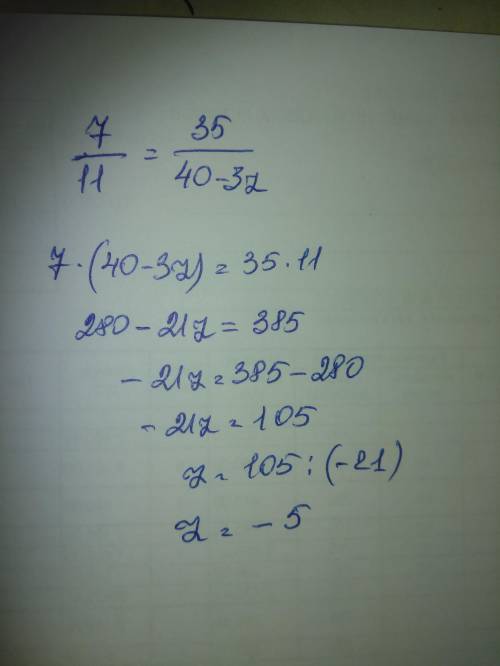 7/11 = 35/(40-3z)
7·(40-3z) = 35·11
280-21z = 385
-21z = 385-280
-21z = 105
z = 105:(-21)
z = -5